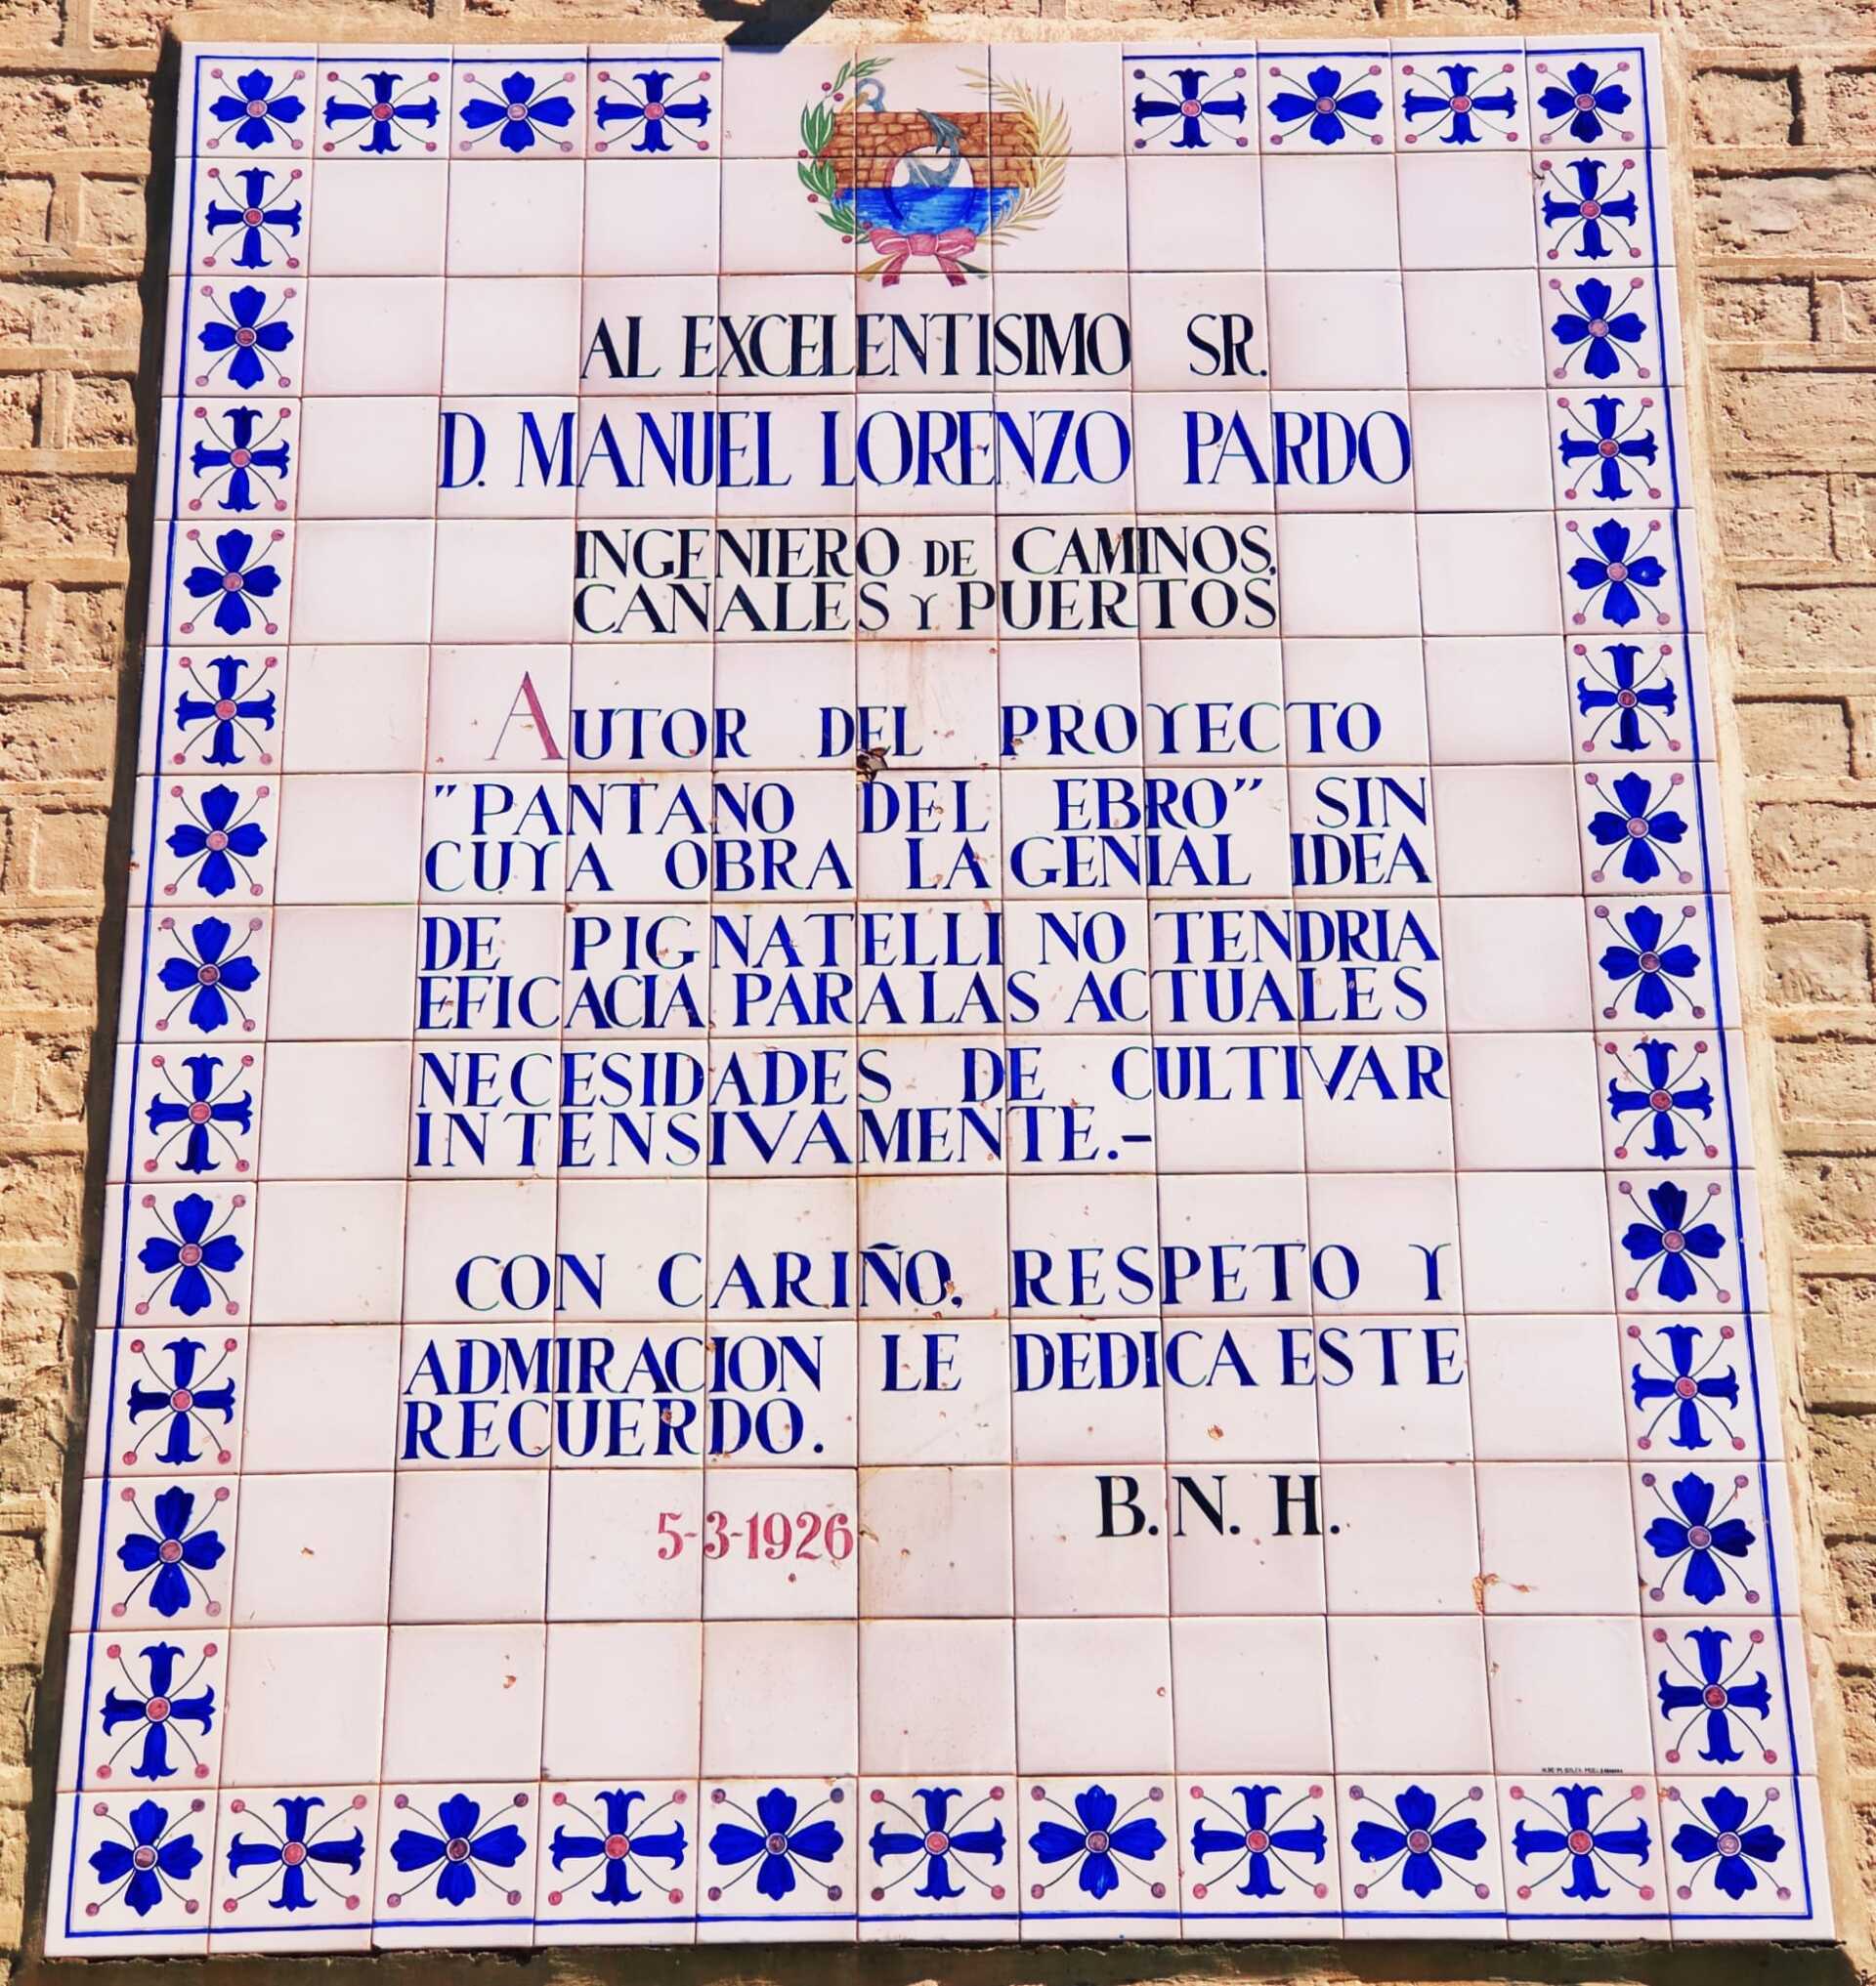 AL EXCELENTISIMO SR.
D. MANUEL LORENZO PARDO
INGENIERO DE CAMINOS,
CANALES Y PUERTOS
AUTOR DEL PROYECTO
"PANTANO DEL EBRO" SIN
CUYA OBRA LA GENIAL IDEA
DE PIGNATELLI NO TENDRIA
EFICACIA PARA LAS ACTUALES
NECESIDADES DE CULTIVAR
INTENSIVAMENTE.-
CON CARIÑO, RESPETO Y
ADMIRACION LE DEDICA ESTE
RECUERDO.
B. N. H.
5-3-1926